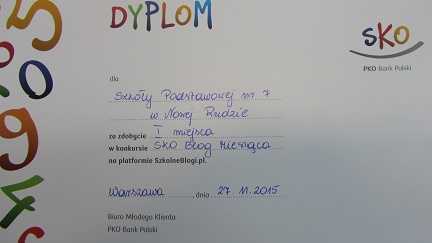 DYPLOM
SKO
PKO Bank Polski
dla
Szkoły Podstawowej nr 7
w Nowej Rudzie
za zdobycie I miejsca
w konkursie SKO Blog Miesiąca
na platformie SzkolneBlogi.pl.
Warszawa, dnia 27. 11. 2015
Biuro Młodego Klienta
PKO Bank Polski